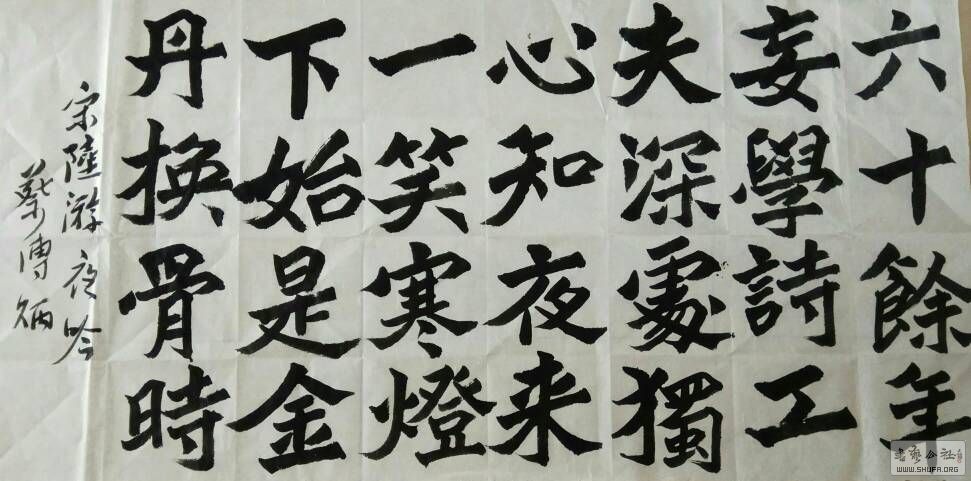 六十餘年
妄學詩工
夫深處獨
心知夜来
一笑寒燈
下始是金
丹換骨時
宋陸游夜吟
蔡傳炳
書藝公社
WWW.SHUFA.ORG